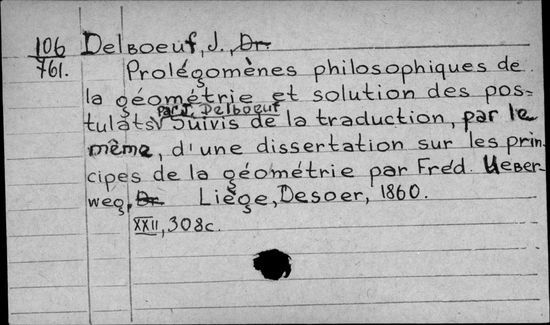 106 Delboeuf, J., Dr.
761. Prolégomènes philosophiques de
la géométrie et solution des pos=
par J. Delboeuf
tulats √ Suivis de la traduction, par le
même, d'une dissertation sur les prin-
cipes de la géométrie par Fréd. Ueber-
weg, Dr. Liège, Desoer, 1860.
XXII, 308c.